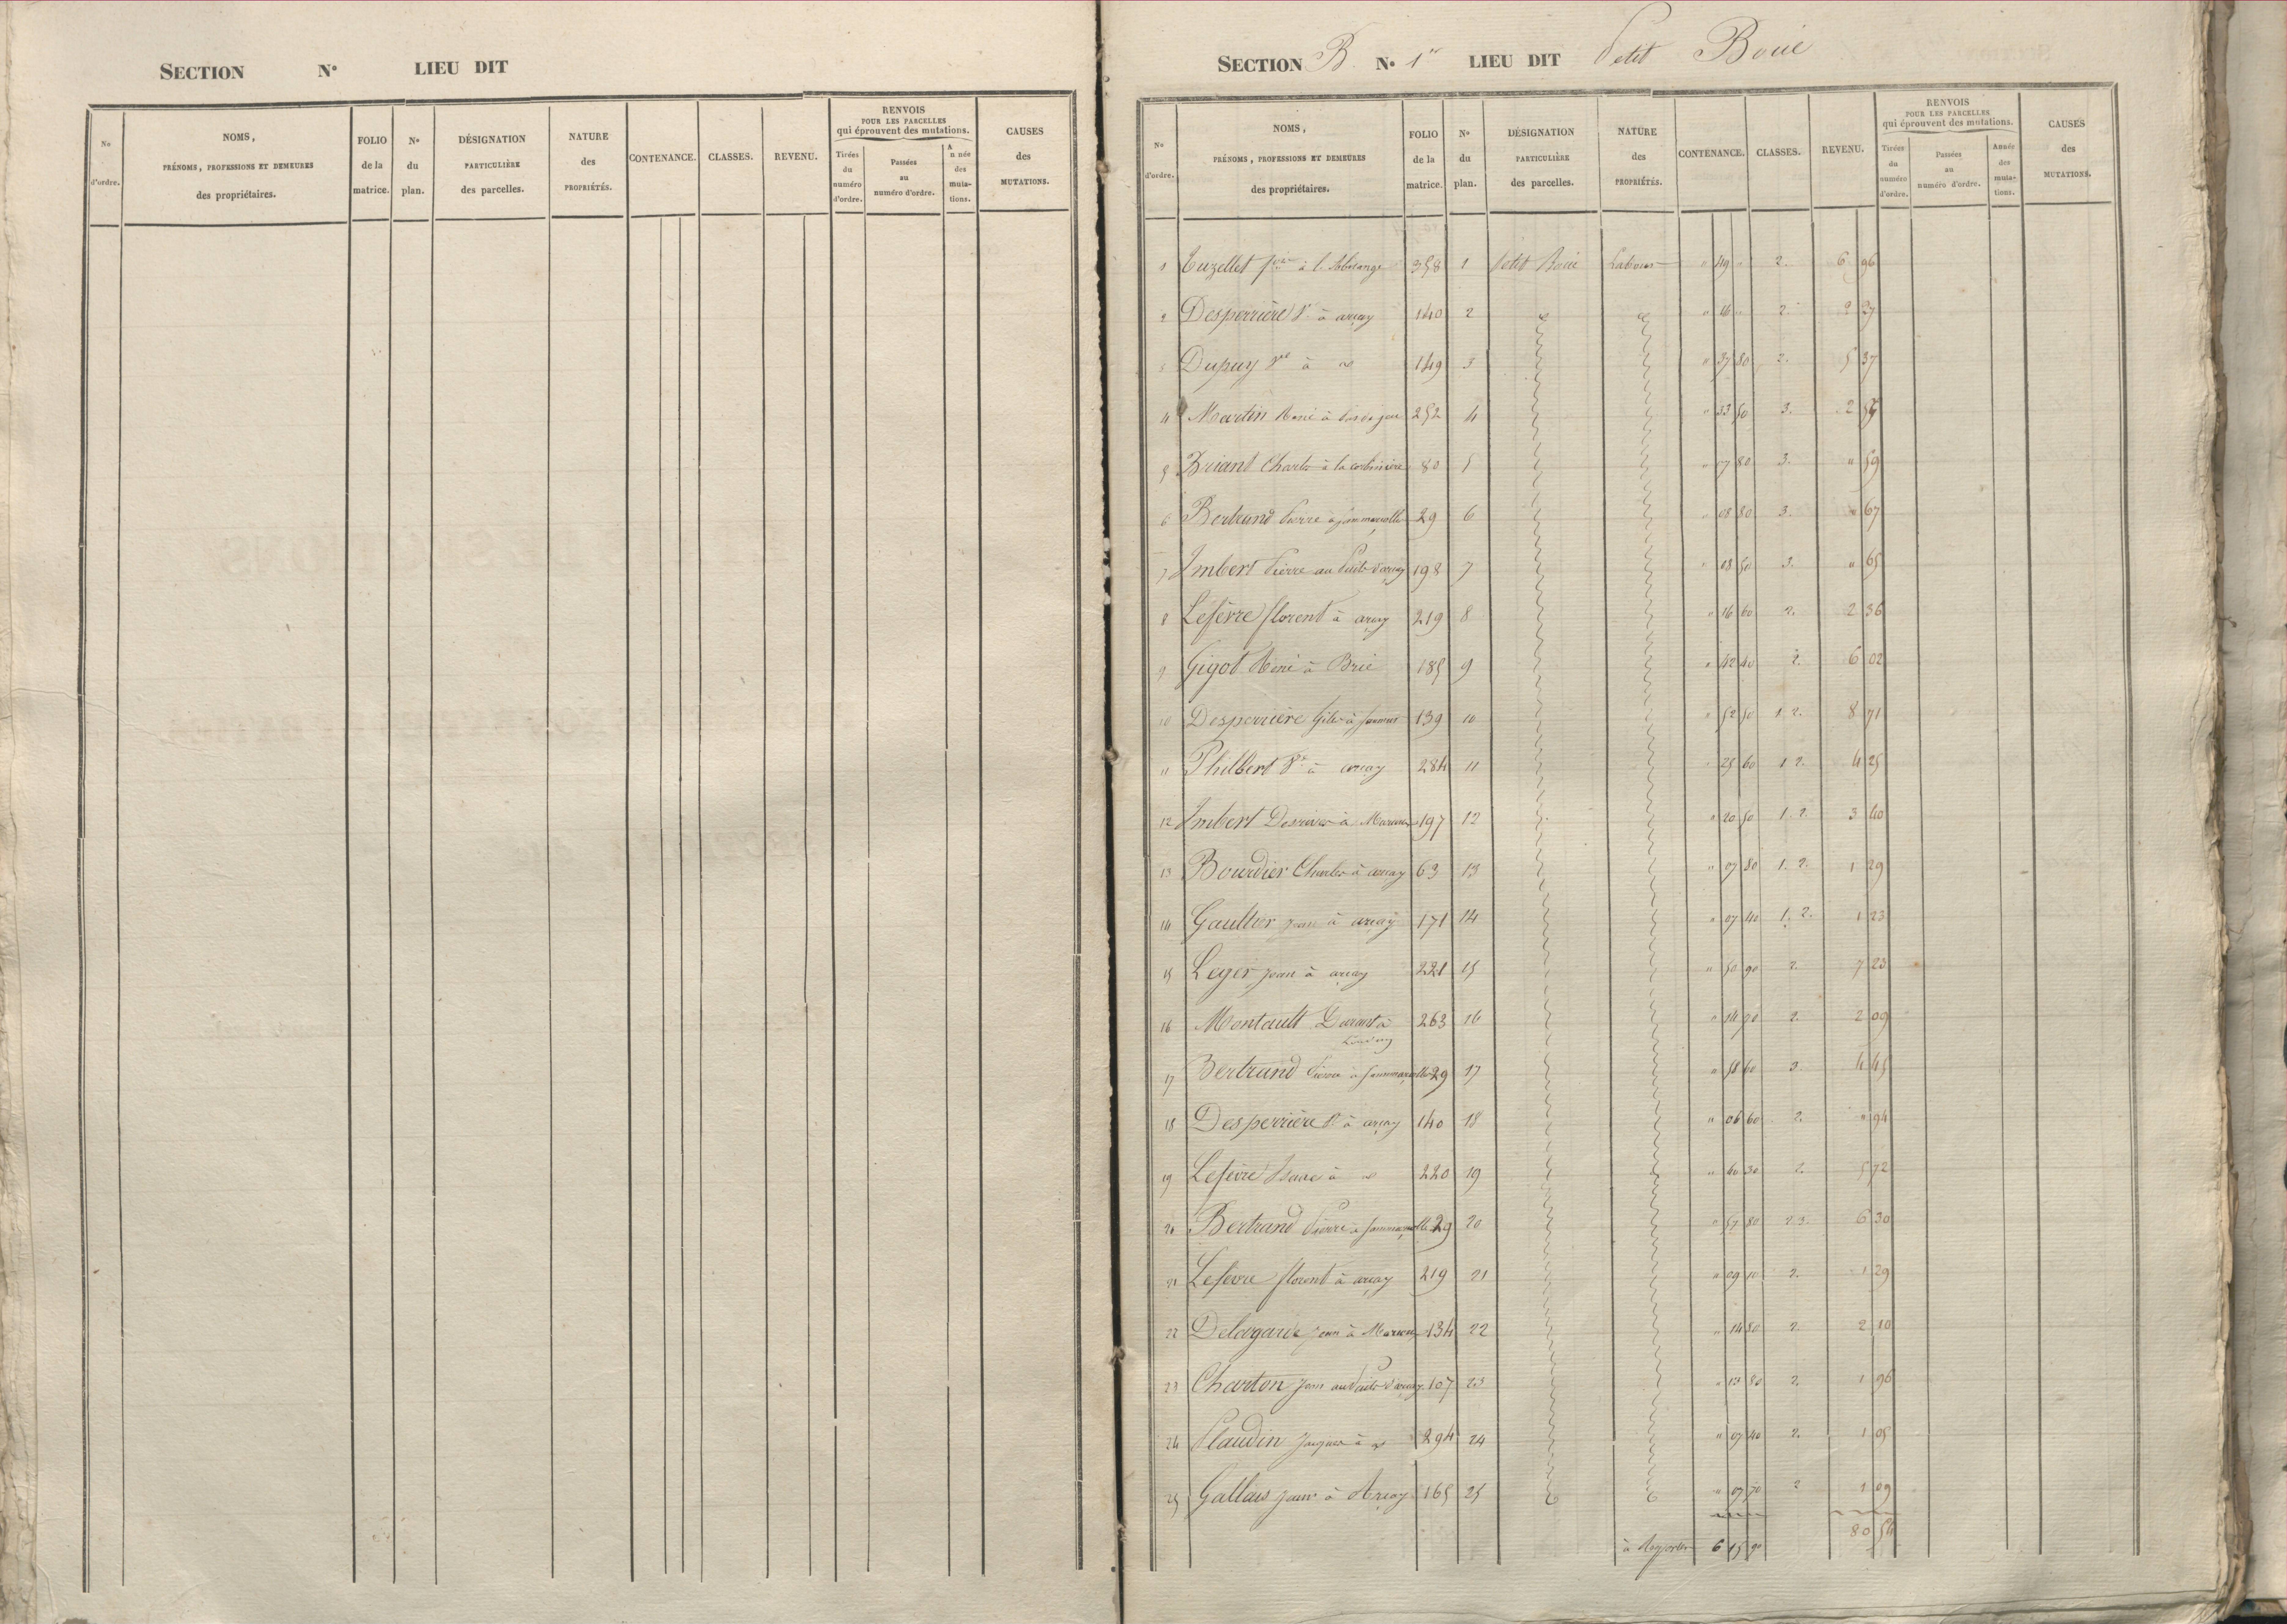 SECTION N° LIEU DIT
N° d'ordre. NOMS, PRÉNOMS, PROFESSIONS ET DEMEURES des propriétaires. FOLIO de la matrice. N° du plan. DÉSIGNATION PARTICULIÈRE des parcelles. NATURE des PROPRIÉTÉS. CONTENANCE. CLASSES. REVENU. RENVOIS POUR LES PARCELLES qui éprouvent des mutations. Tirées du numéro d'ordre. Passées au numéro d'ordre. Année des mutations. CAUSES des MUTATIONS.
SECTION B. N° 1er LIEU DIT Petit Boué
N° d'ordre. NOMS, PRÉNOMS, PROFESSIONS ET DEMEURES des propriétaires. FOLIO de la matrice. N° du plan. DÉSIGNATION PARTICULIÈRE des parcelles. NATURE des PROPRIÉTÉS. CONTENANCE. CLASSES. REVENU. RENVOIS POUR LES PARCELLES qui éprouvent des mutations. Tirées du numéro d'ordre. Passées au numéro d'ordre. Année des mutations. CAUSES des MUTATIONS.
1 Tuzellet à 358 1 Petit Boué Labour " 49 " 2. 6 96
2 Desperrière à arçay 140 2 " 16 " 2 2 27
3 Dupuy à 149 3 " 37 80 2. 5 37
4 Martin René à 252 4 " 33 50 3.
5 Briant Charles à la 80 5 " 07 80 3. " 59
6 Bertrand Pierre à Sammarcolle 29 6 " 08 80 3. " 67
7 Imbert Pierre au Puits d'arçay 198 7 " 08 50 3. " 65
8 Lefèvre florent à arçay 219 8 " 16 60 2. 2 36
9 Gigot René à Brie 185 9 " 42 40 2. 6 02
10 Desperrière à Saumur 139 10 " 52 50 1. 2. 8 71
11 Philbert à arçay 284 11 " 25 60 1 2. 4 25
12 Imbert à 197 12 " 20 50 1. 2. 3 40
13 Bourdier Charles à arçay 63 13 " 07 80 1. 2. 1 29
14 Gaultier jean à arçay 171 14 " 07 40 1. 2. 1 23
15 Leger jean à arçay 221 15 " 50 90 2. 7 23
16 Montault à Loudun 263 16 " 14 2. 2 09
17 Bertrand Pierre à Sammarcolle 29 17 " 58 60 3. 4 45
18 Desperrière à arçay 140 18 " 06 60 2. " 94
19 Lefèvre à 220 19 " 40 30 2. 5 72
20 Bertrand Pierre à Sammarcolle 29 20 " 57 80 2. 3. 6 30
21 Lefèvre florent à arçay 219 21 " 09 10 2. 1 29
22 Delagarde jean à 134 22 " 14 80 2. 2 10
23 Charton jean au Puits d'arçay 107 23 " 13 80 2. 1 96
24 Plaudin jacques à 294 24 " 07 40 2. 1 05
25 Gallais jean à Arçay 165 25 " 07 70 2 1 09
à Reporter 6 15 90 80 54